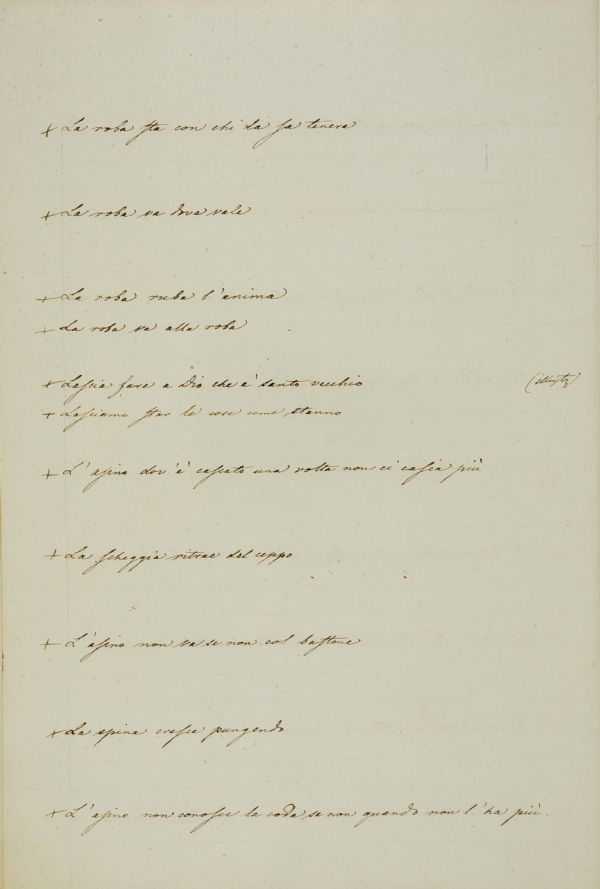 + La roba sta con chi la sa tenere
+ La roba va dove vale
+ La roba ruba l'anima
+ La roba va alla roba
+ Lascia fare a Dio che è santo vecchio (illustr
+ Lasciamo star le cose come stanno
+ L'asino dov'è cascato una volta non ci casca più
+ La scheggia ritrae del ceppo
+ L'asino non va se non col bastone
+ La spina cresce pungendo
+ L'asino non conosce la coda se non quando non l'ha più.